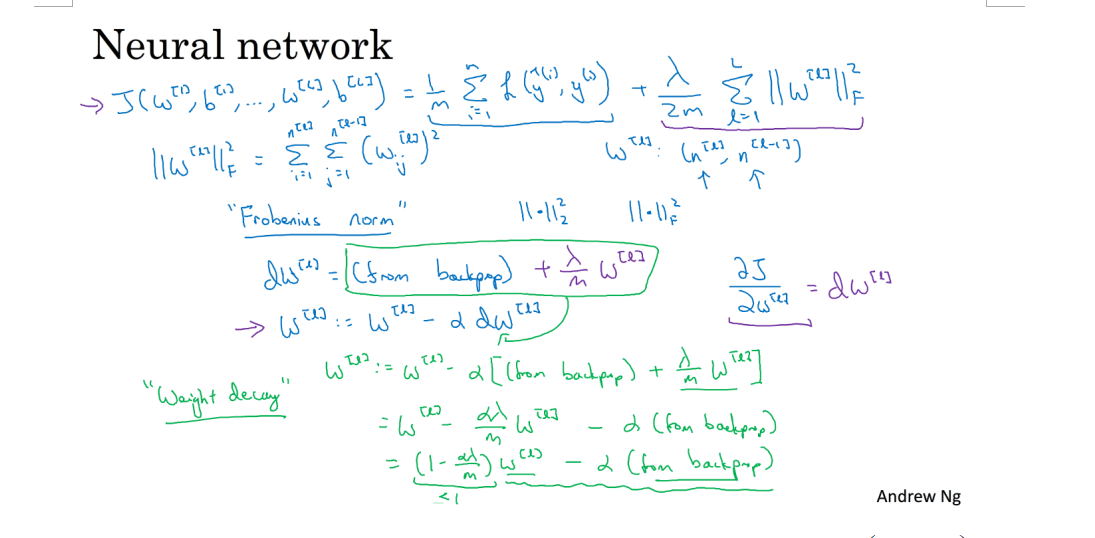 Neural network
→ J(w^[1], b^[1], ..., w^[L], b^[L]) = 1/m Σ_{i=1}^{n} L(ŷ^(i), y^(i)) + λ/2m Σ_{l=1}^{L} ||w^[l]||_F^2
||w^[l]||_F^2 = Σ_{i=1}^{n^[l]} Σ_{j=1}^{n^[l-1]} (w_ij^[l])^2 w^[l]: (n^[l], n^[l-1])
↑ ↑
"Frobenius norm" ||·||_2^2 ||·||_F^2
dw^[l] = (from backprop) + λ/m w^[l] ∂J/∂w^[l] = dw^[l]
→ w^[l] := w^[l] - α dw^[l]
w^[l] := w^[l] - α[(from backprop) + λ/m w^[l]]
"Weight decay"
= w^[l] - αλ/m w^[l] - α (from backprop)
= (1 - αλ/m) w^[l] - α (from backprop)
<1
Andrew Ng